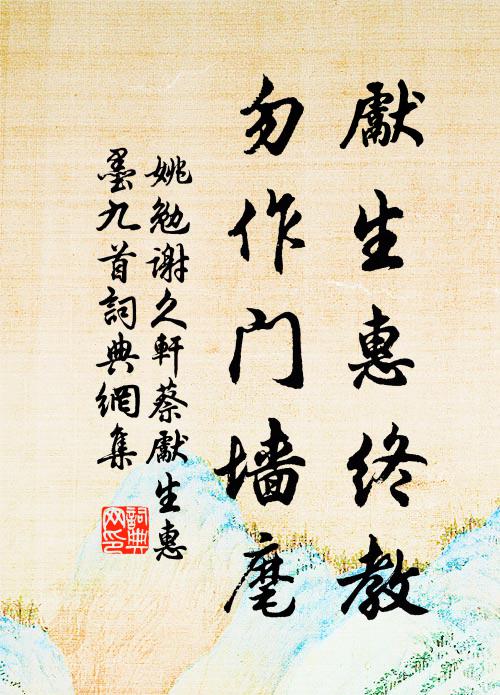 獻生惠终教
勿作门墙麾
姚勉谢久軒蔡獻生惠
墨九首詞典網集
詞典网印